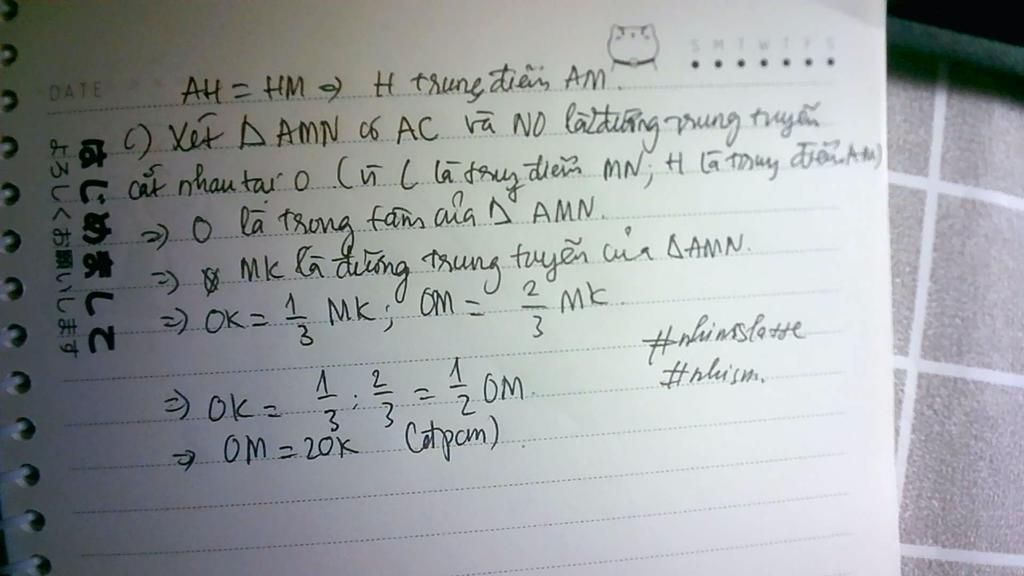 DATE
S M T W T F S
AH = HM => H trung điểm AM.
c) Xét Δ AMN có AC và NO là đường trung tuyến
cắt nhau tại O (vì C là trung điểm MN; H là trung điểm AM)
=> O là trọng tâm của Δ AMN.
=> MK là đường trung tuyến của ΔAMN.
=> OK = 1/3 MK; OM = 2/3 MK.
#nhimslatte
#nhism.
=> OK = 1/3 : 2/3 = 1/2 OM.
=> OM = 2OK (đpcm)
はじめまして
よろしくお願いします